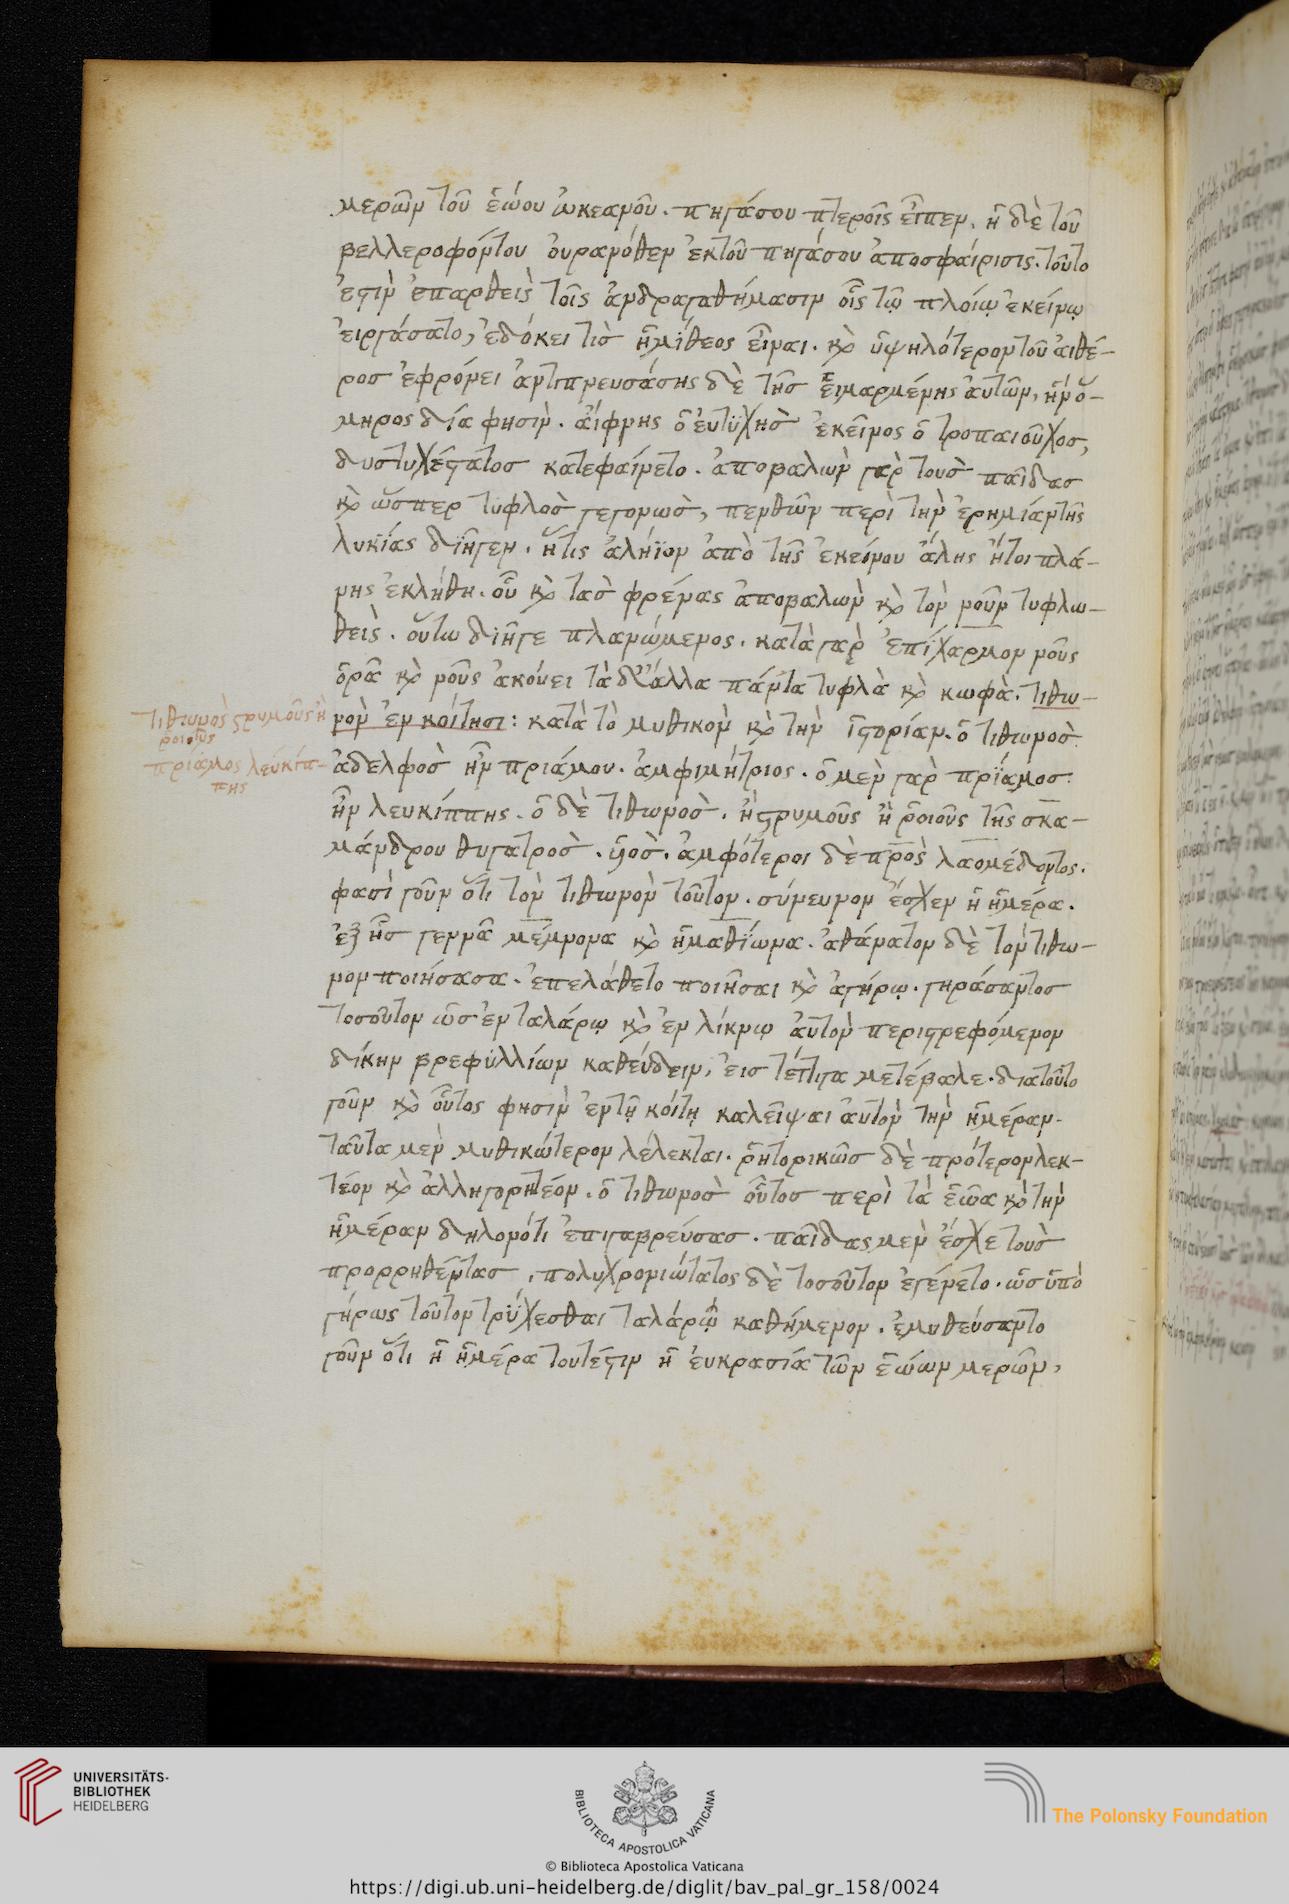 μερῶν τοῦ ἑώου ὠκεανοῦ. πηγάσου πτεροῖς εἶπεν. ἡ δὲ τοῦ
βελλεροφόντου οὐρανόθεν ἐκτοῦ πηγάσου ἀποσφαίρισις. τοῦτο
ἐστὶν ἐπαρθεὶς τοῖς ἀνδραγαθήμασιν οἷς τῷ πλοίῳ ἐκείνῳ
εἰργάσατο, ἐδόκει τίς ἡμίθεος εἶναι. καὶ ὑψηλότερον τοῦ αἰθέ-
ρος ἐφρόνει ἀντιπνευσάσης δὲ τῆς εἱμαρμένης αὐτῶν, ἣν ὅ-
μηρος δία φησὶν. αἴφνης ὁ εὐτυχὴς ἐκεῖνος ὁ τροπαιοῦχος,
δυστυχέστατος κατεφαίνετο. ἀποβαλὼν γὰρ τοὺς παῖδας
καὶ ὥσπερ τυφλὸς γεγονὼς, πενθῶν περὶ τὴν ἐρημίαν τῆς
λυκίας διῆγεν. ἥτις ἀλήϊον ἀπὸ τῆς ἐκείνου ἄλης ἤτοι πλά-
νης ἐκλήθη. οὗ καὶ τὰς φρένας ἀποβαλὼν καὶ τὸν νοῦν τυφλω-
θεὶς. οὕτω διῆγε πλανώμενος. κατὰ γὰρ ἐπίχαρμον νοῦς
ὁρᾷ καὶ νοῦς ἀκούει τὰ δ' ἄλλα πάντα τυφλὰ καὶ κωφὰ. τιθω-
νὸν ἐν κοίτησι: κατὰ τὸ μυθικὸν καὶ τὴν ἱστορίαν. ὁ τιθωνὸς
ἀδελφὸς ἦν πριάμου. ἀμφιμήτριος. ὁ μὲν γὰρ πρίαμος:
ἦν λευκίππης. ὁ δὲ τιθωνὸς. ἢ στρυμοῦς ἢ ῥοιοῦς τῆς σκα-
μάνδρου θυγατρὸς. ὑιὸς. ἀμφότεροι δὲ πρὸς λαομέδοντος.
φασὶ γοῦν ὅτι τὸν τιθωνὸν τοῦτον. σύνευνον ἔσχεν ἡ ἡμέρα.
ἐξ ἧς γεννᾶ μέμνονα καὶ ἡμαθίωνα. ἀθάνατον δὲ τὸν τιθω-
νον ποιήσασα. ἐπελάθετο ποιῆσαι καὶ ἀγήρω. γηράσαντος
τοσοῦτον ὡς ἐν ταλάρῳ καὶ ἐν λίκνῳ αὐτὸν περιστρεφόμενον
δίκην βρεφυλλίων καθεύδειν, εἰς τέττιγα μετέβαλε. διατοῦτο
γοῦν καὶ οὗτος φησὶν ἐν τῇ κοίτῃ καλεῖψαι αὐτὸν τὴν ἡμέραν.
ταῦτα μὲν μυθικώτερον λέλεκται. ῥητορικῶς δὲ πρότερον λεκ-
τέον καὶ ἀλληγορητέον. ὁ τιθωνὸς οὗτος περὶ τὰ ἑῶα καὶ τὴν
ἡμέραν δηλονότι ἐπιγαβρεύσας. παῖδας μὲν ἔσχε τοὺς
προρρηθέντας, πολυχρονιώτατος δὲ τοσοῦτον ἐγένετο. ὡς ὑπὸ
γήρως τοῦτον τρύχεσθαι ταλάρῳ καθήμενον. ἐμυθεύσαντο
γοῦν ὅτι ἡ ἡμέρα τουτέστιν ἡ εὐκρασία τῶν ἑώων μερῶν,
τιθωνὸς στρυμοῦς ἢ
ῥοιοῦς
πρίαμος λευκίπ-
πης
UNIVERSITÄTS-
BIBLIOTHEK
HEIDELBERG
BIBLIOTECA APOSTOLICA VATICANA
The Polonsky Foundation
© Biblioteca Apostolica Vaticana
https://digi.ub.uni-heidelberg.de/diglit/bav_pal_gr_158/0024